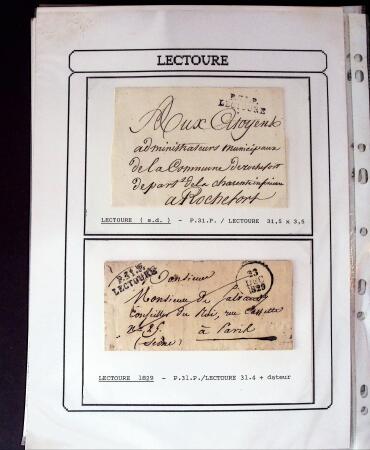 LECTOURE
P.31.P.
LECTOURE
Aux Citoyens
administrateurs municipaux
de la Commune de rochefort
depart.t de la charente inferieure
a Rochefort
LECTOURE ( s.d. ) - P.31.P. / LECTOURE 31,5 x 3,5
P.31.P.
LECTOURE
23
DEC
1829
Monsieur
Monsieur de
Conseiller du Roi, rue Cassette
n° 25
à Paris
(Seine)
LECTOURE 1829 - P.31.P./LECTOURE 31.4 + dateur